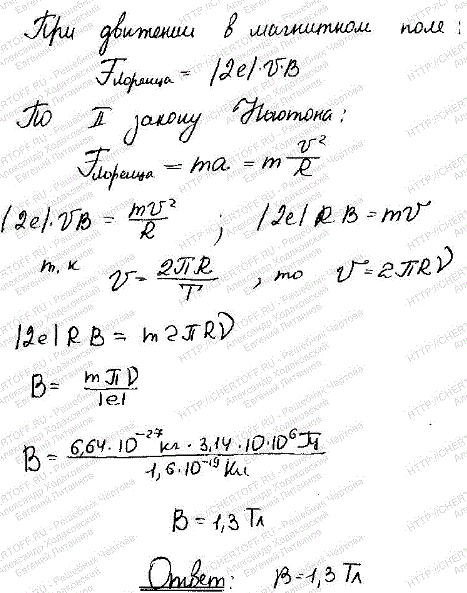 При движении в магнитном поле:
Fлоренца = |2e|·V·B
По II закону Ньютона:
Fлоренца = ma = m V²/R
|2e|·VB = mV²/R ; |2e|RB = mV
т.к V = 2ПR/T , то V = 2ПRν
|2e|RB = m2ПRν
B = mПν/|e|
B = 6,64·10⁻²⁷кг·3,14·10·10⁶Гц/1,6·10⁻¹⁹Кл
B = 1,3 Тл
Ответ: B = 1,3 Тл
HTTP://CHERTOFF.RU - Решебник Чертова
Александр Ходаковский
Евгений Литвинов